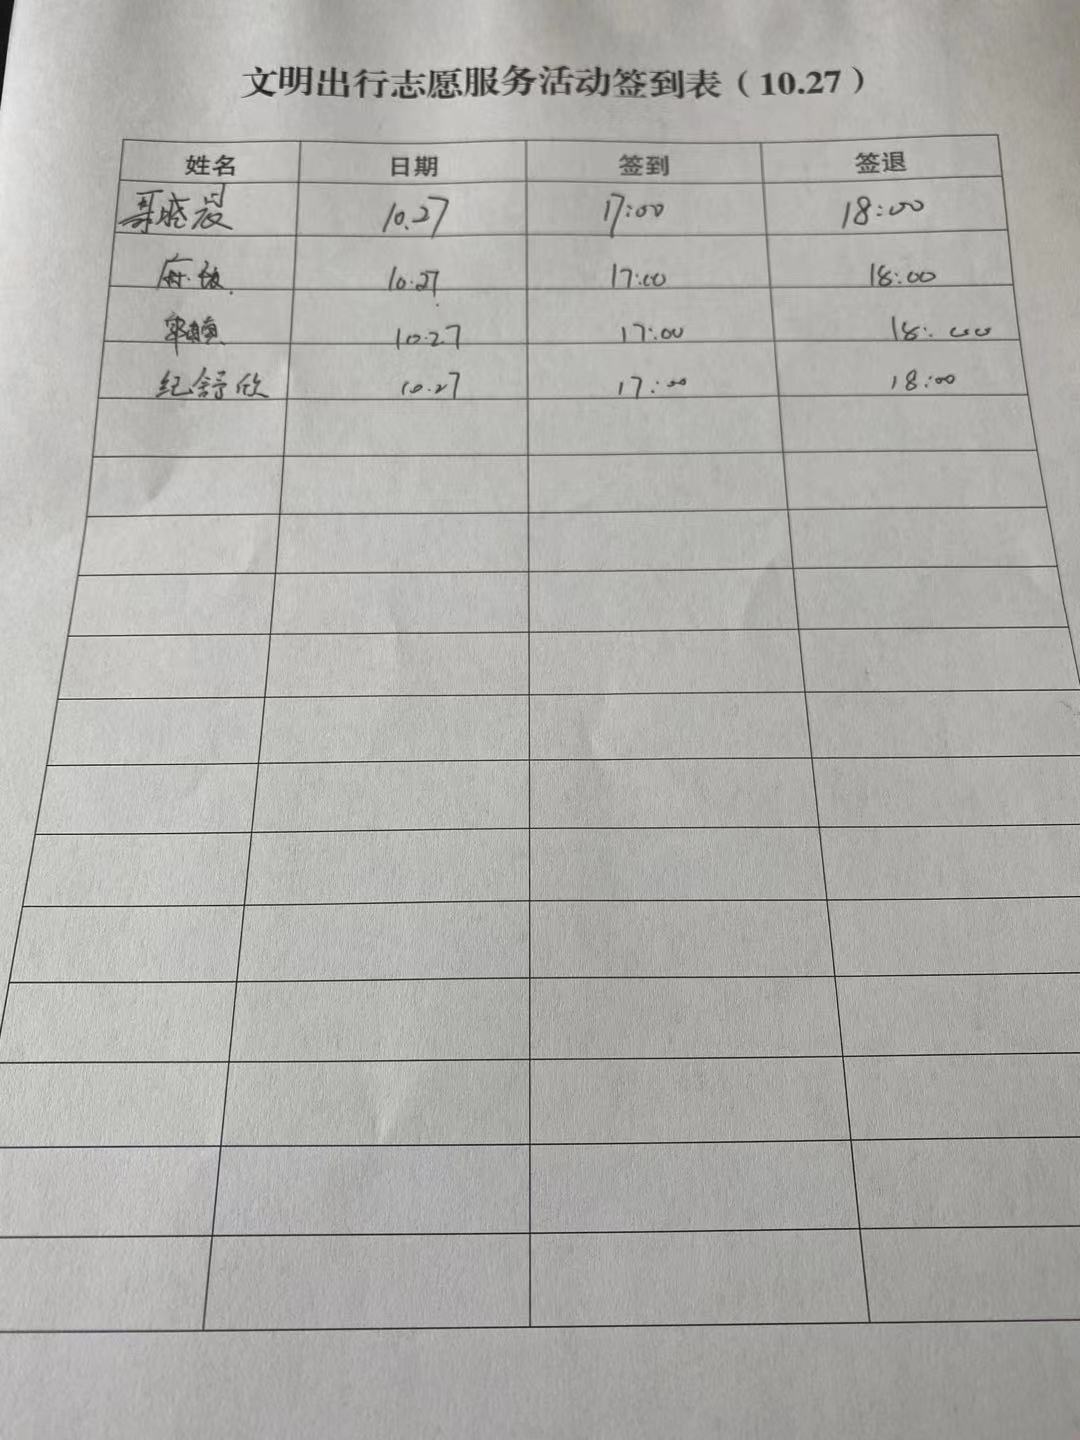 文明出行志愿服务活动签到表（10.27）
姓名 日期 签到 签退
晨 10.27 17:00 18:00
10.27 17:00 18:00
10.27 17:00 18:00
纪舒欣 10.27 17:00 18:00